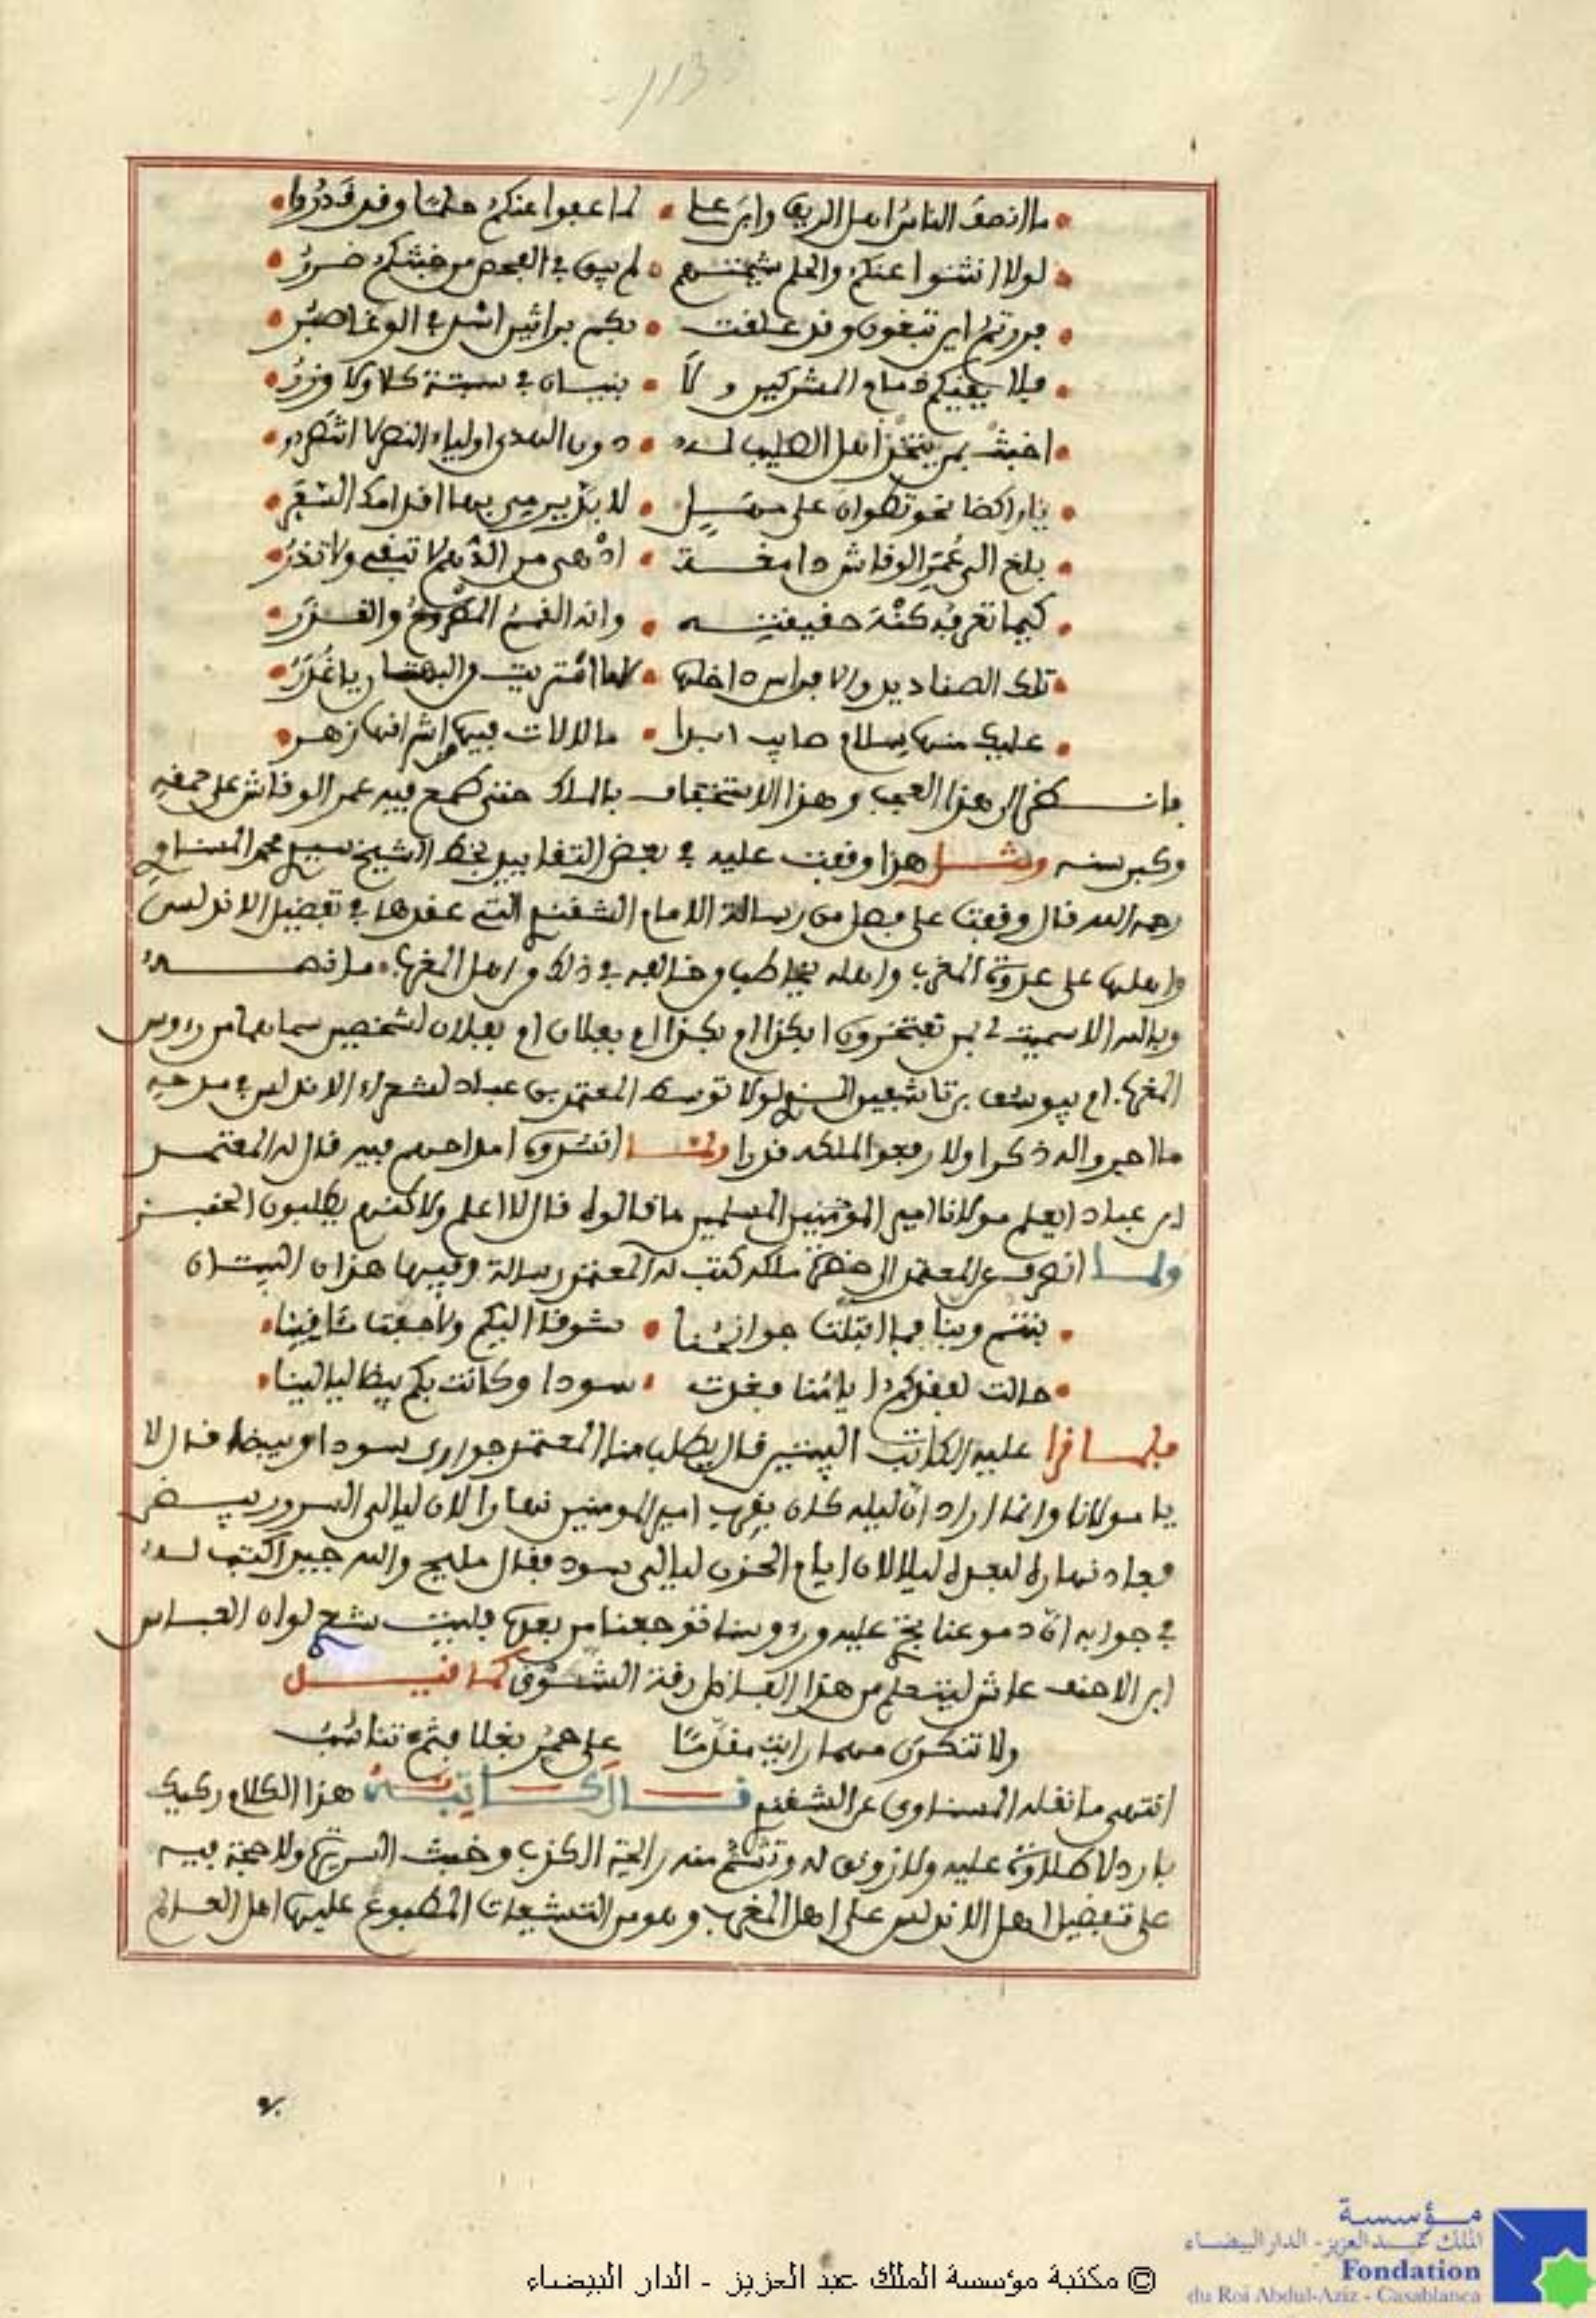 113
ما انصف الناس اهل الريف وابن علي • لما عفوا عنكم حلما وقد قدروا
لولا انثنوا عنكم والحلم شيمتهم • لم يبق في الفحص من خبثكم ضرر
فررتم اين تبغون وقد علقت • بكم براثين اسد في الوغا صبر
فلا يقيكم ذمام المشركين ولا • بنيان في سبتة كلا ولا وزر
اخبث بمن ينتخي اهل الصليب له • دون الهدى اولياء النصر لا انتصروا
يا راكضا نحو تطوان على مهل • لا بد يرمي بها افدامك السفر
بلغ الى عمر الوقاش دامغة • ادهى من الدهم لا تبقي ولا تذر
كيما تعرفه كنه حقيقته • وانه القمع المطروح والقزر
تلك الصناديد والافراس داخلها • لا ما افتريت والبهتان يا غدر
عليك منها سلام صايب ابدا • ما لالات فيها اشرافها زهر
فانظر الى هذا العجب وهذا الاستخفاف بالملك حتى طمع فيه عمر الوقاش على حمقه
وكبر سنه ومثل هذا وقفت عليه في بعض التقاييد بخط الشيخ سيدي محمد المسناوي
رحمه الله قال وقفت على فصل من رسالة الامام الشقندي التي عقدها في تفضيل الاندلس
واهلها على عدوة المغرب واهله يخاطب من خالفه في ذلك من اهل المغرب ما نصه
وبالله الا سميت لي بمن تفتخرون ابكذا ام بكذا ام بفلان ام بفلان لشخصين سماهما من رءوس
المغرب ام بيوسف بن تاشفين الذي لولا توسط المعتمد بن عباد لشعراء الاندلس في مدحه
ما اجروا له ذكرا ولا رفعوا لملكه قدرا ولما انشدوه امداحهم فيه قال له المعتمد
ابن عباد ايعلم مولانا امير المؤمنين المسلمين ما قالوه قال لا اعلم ولاكنهم يطلبون الخبز
ولما انصرف عن المعتمد الى حضرة ملكه كتب له المعتمد رسالة وفيها هذان البيتان
بنتم وبنا فما ابتلت جوانحنا • شوقا اليكم ولا جفت مئاقينا
حالت لفقدكم ايامنا فغدت • سودا وكانت بكم بيضا ليالينا
فلما قرا عليه الكاتب البيتين قال يطلب منا المعتمد جواري سودا وبيضا قال لا
يا مولانا وانما اراد ان ليله كان بقرب امير المومنين نهارا لان ليالي السرور بيض
فعاد نهاره لبعده ليلا لان ايام الحزن ليالي سود فقال مليح والله جيد اكتب له
في جوابه ان دموعنا تجري عليه ورءوسنا توجعنا من بعده فليت شعري لو ان العباس
ابن الاحنف عاش ليتعلم من هذا الفاضل رقة الشوق كما قيل
ولا تنكرن مهما رايت مقدما على حمر بغلا فثم تناسب
انتهى ما نقله المسناوي عن الشقندي قال كاتبه هذا الكلام ركيك
بارد لا طلاوة عليه ولا رونق له وتشم منه رائحة الكذب وخبث السريرة ولا حجة فيه
على تفضيل اهل الاندلس على اهل المغرب وهو من التشيعات المطبوع عليها اهل العدالة
© مكتبة مؤسسة الملك عبد العزيز - الدار البيضاء
مؤسسة
الملك عبد العزيز - الدار البيضاء
Fondation
du Roi Abdul-Aziz - Casablanca